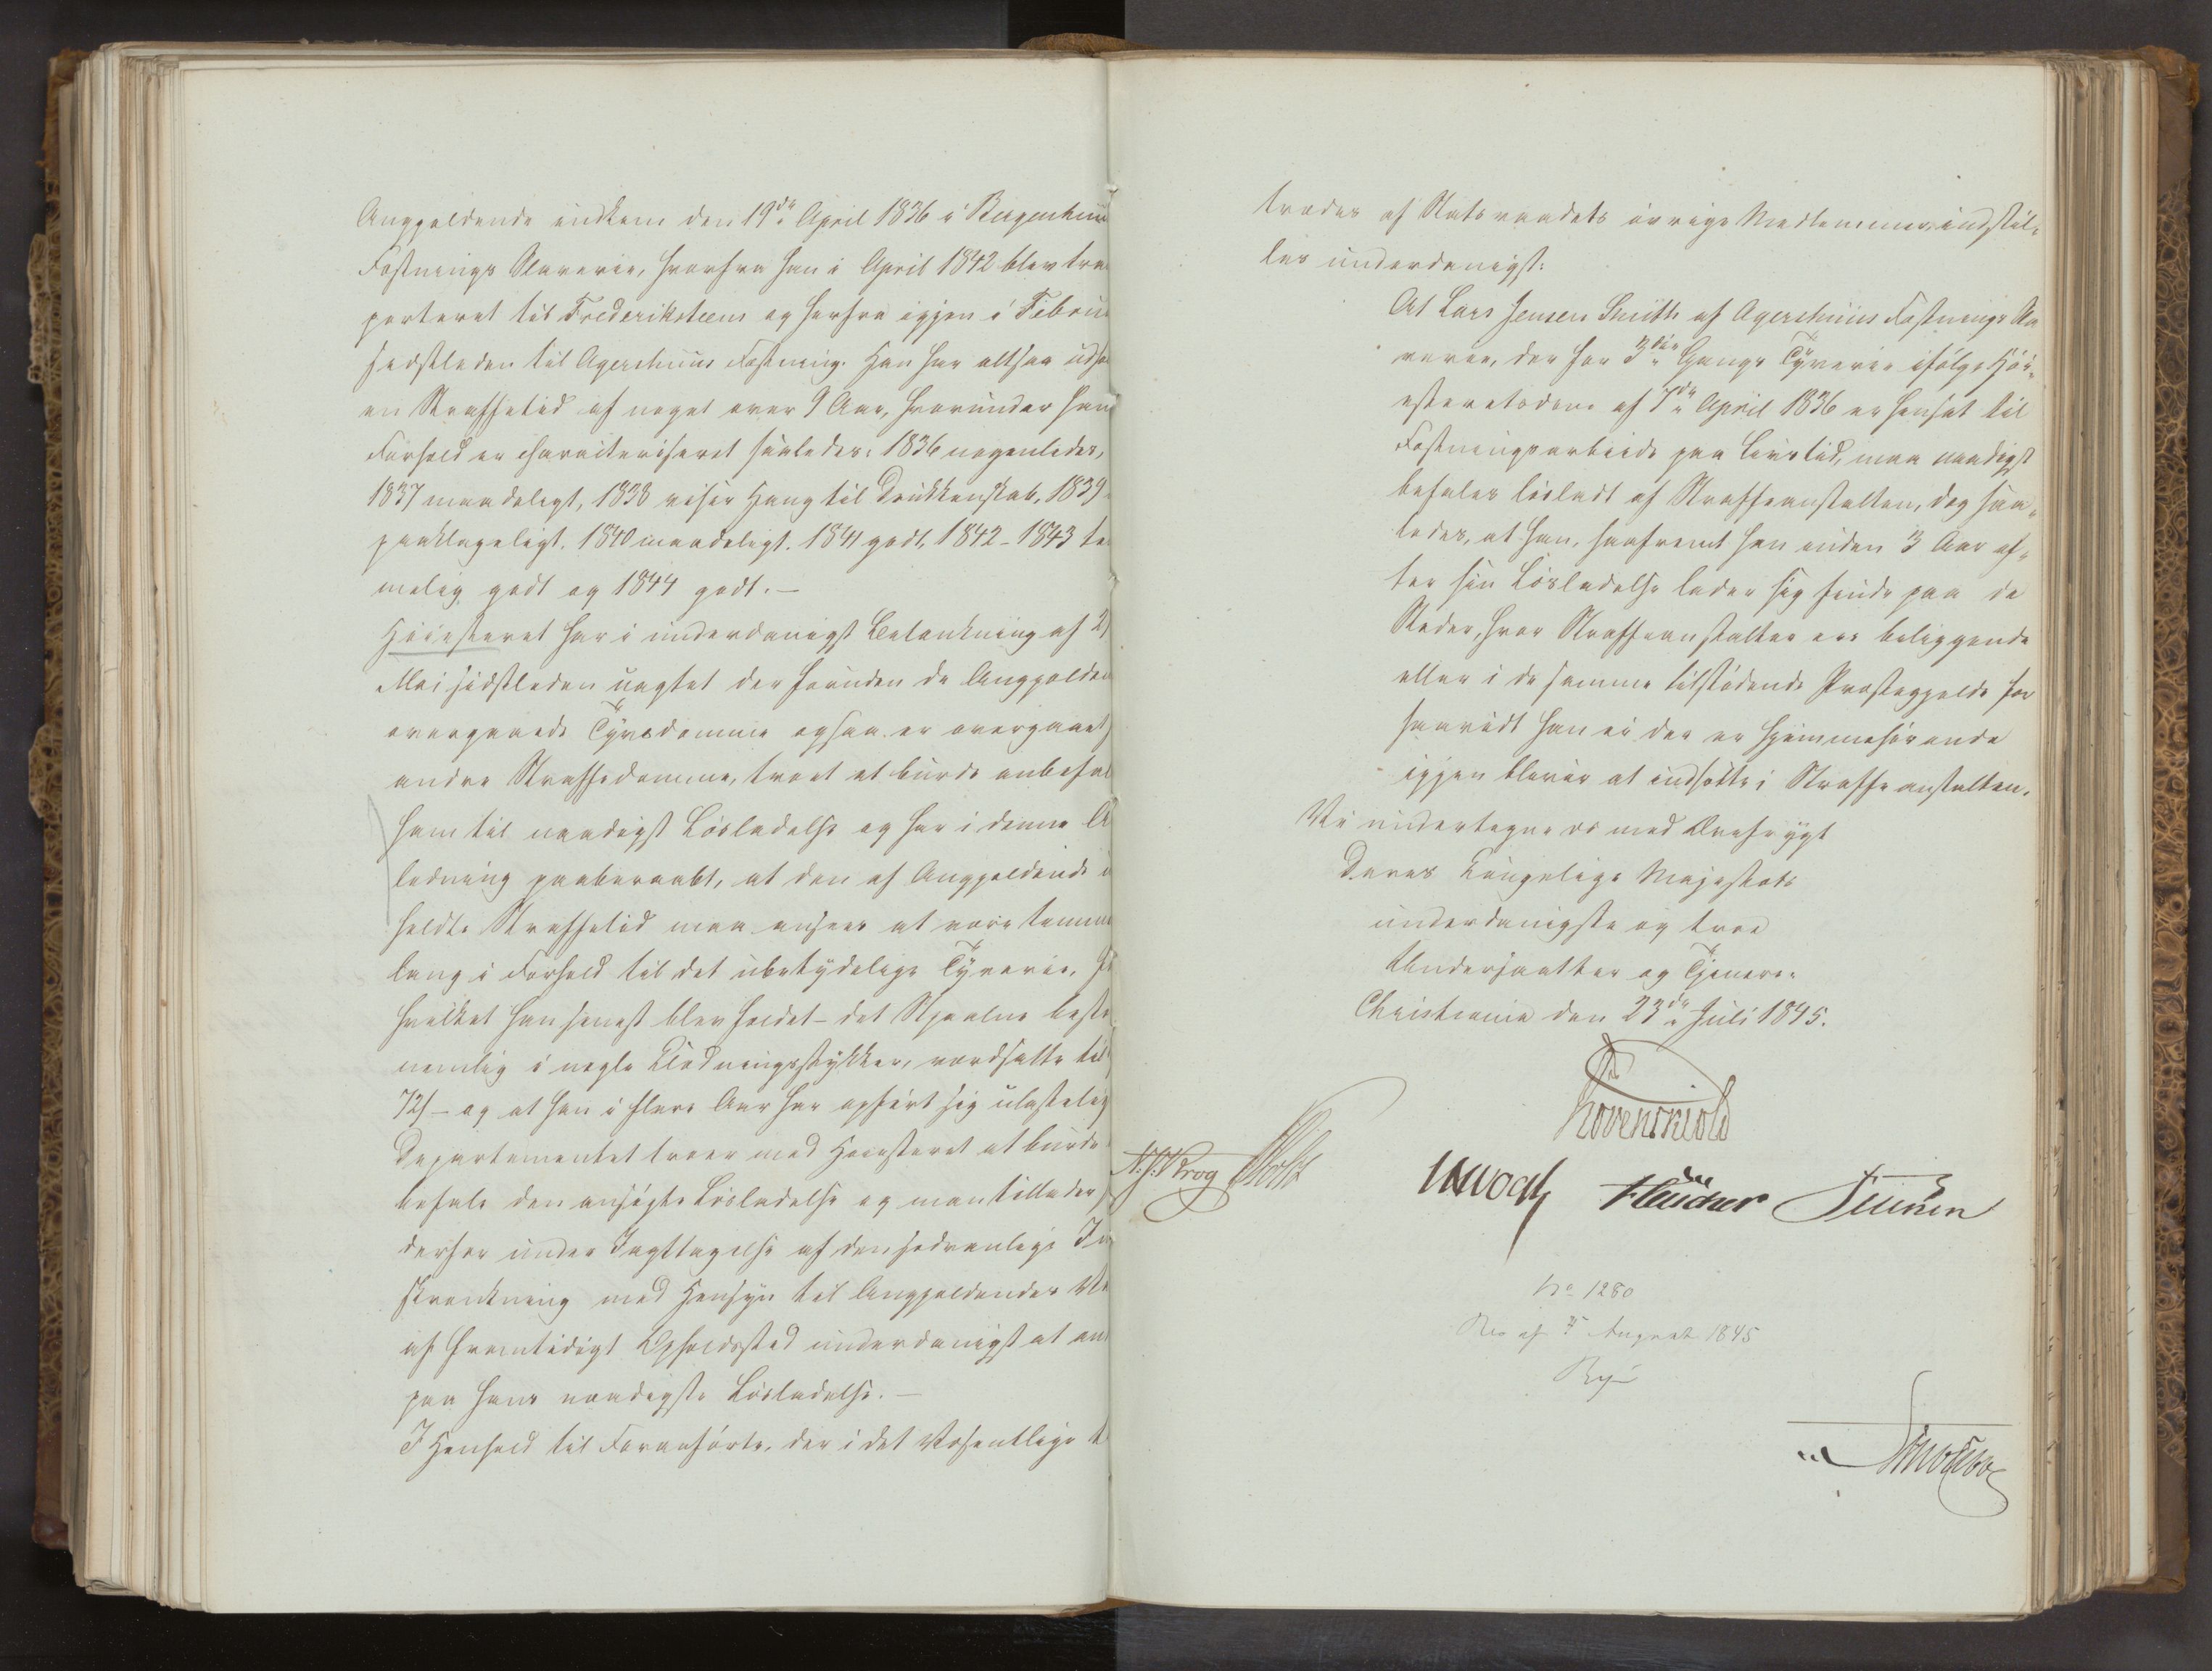 Angjeldende indkom den 19de April 1836 i Bergenhuus
Fæstnings Slaverie, hvorfra han i April 1842 blev tra
porteret til Frederiksteens og herfra igjen i Februa
sidstleden til Agershuus Fæstning. Han har altsaa udho
en Straffetid af noget over 9 Aar, hvorunder hans
Forhold er charakteriseret saaledes: 1836 nogenledes,
1837 maadeligt, 1838 viser Hang til Drukkenskab, 1839
paaklageligt. 1840 maadeligt. 1841 godt, 1842-1843 te
melig godt og 1844 godt. —
Høiesteret har i underdanigst Betænkning af 2
Mai sidstleden uagtet der foruden de Angjelden
overgaaede Tyvsdomme ogsaa er overgaaet
andre Straffedomme, troet at burde anbefal
ham til naadigst Løsladelse og har i denne A
ledning paaberaabt, at den af Angjeldende u
holdte Straffetid maa ansees at være temme
lang i Forhold til det ubetydelige Tyverie, fo
hvilket han senest blev fældet - det Stjaalne besto
nemlig i nogle Klædningsstykker, værdsatte til
72ſ - og at han i flere Aar har opført sig ulastelig
Departementet troer med Høiesteret at burde
befale den ansøgte Løsladelse og man tillader
derfor under Iagttagelse af den sædvanlige In
skrænkning med Hensyn til Angjeldendes Va
af fremtidigt Opholdssted underdanigst at an
paa hans naadigste Løsladelse. —
I Henhold til Foranførte, der i det Væsentlige t
trædes af Statsraadets øvrige Medlemmer, indstil-
les underdanigst:
At Lars Jensen Smith af Agershuus Fæstnings Sla
verie, der for 3die Gangs Tyverie ifølge Høi-
esteretsdom af 7de April 1836 er hensat til
Fæstningsarbeide paa Livstid, maa naadigst
befales løsladt af Straffeanstalten, dog saa-
ledes, at han, saafremt han inden 3 Aar ef-
ter sin Løsladelse lader sig finde paa de
Steder, hvor Straffeanstalter ere beliggende
eller i de samme tilstødende Præstegjelde for
saavidt han ei der er hjemmehørende
igjen bliver at indsætte i Straffeanstalten.
Vi undertegne os med Ærefrygt
Deres Kongelige Majestæts
underdanigste og troe
Undersaatter og Tjenere.
Christiania den 23de Juli 1845.
Løvenskiold
N. J. Krog Holst
Vogt Fleischer Petersen
No 1280
Res af 5 August 1845